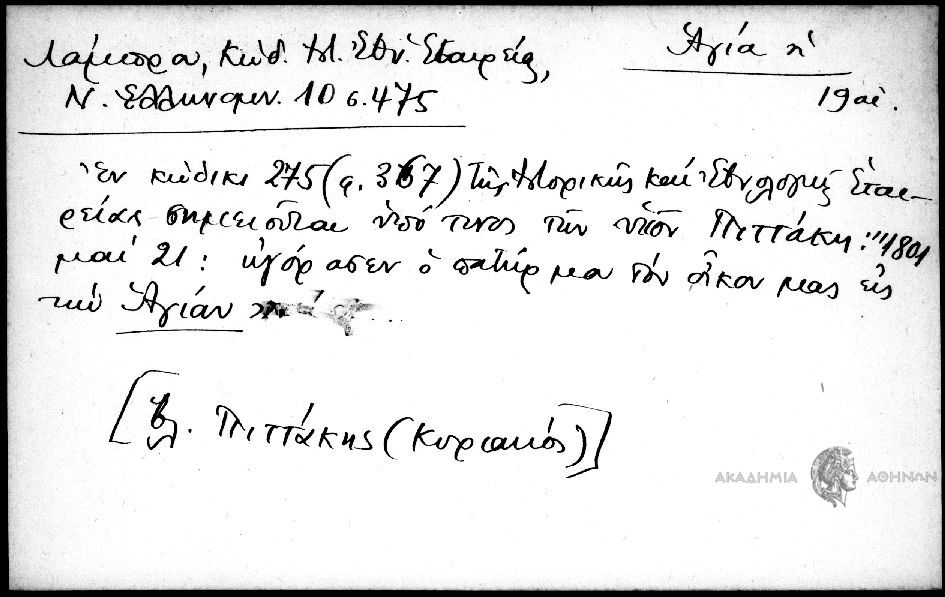 Λάμπρου, Κώδ. Ἱστ. Ἐθν. Ἑταιρείας,
Ν. Ἑλληνομν. 10 σ. 475
Ἁγία ἡ
19 αἰ.
Ἐν κώδικι 275 (φ. 367) τῆς Ἱστορικῆς καὶ Ἐθνολογικῆς Ἑται-
ρείας σημειοῦται ὑπό τινος τῶν υἱῶν Πιττάκη: "1801
μαΐ 21: ἠγόρασεν ὁ πατήρ μου τὸν οἶκον μας εἰς
τὴν Ἁγίαν
[Βλ. Πιττάκης (Κυριακός)]
ΑΚΑΔΗΜΙΑ ΑΘΗΝΩΝ